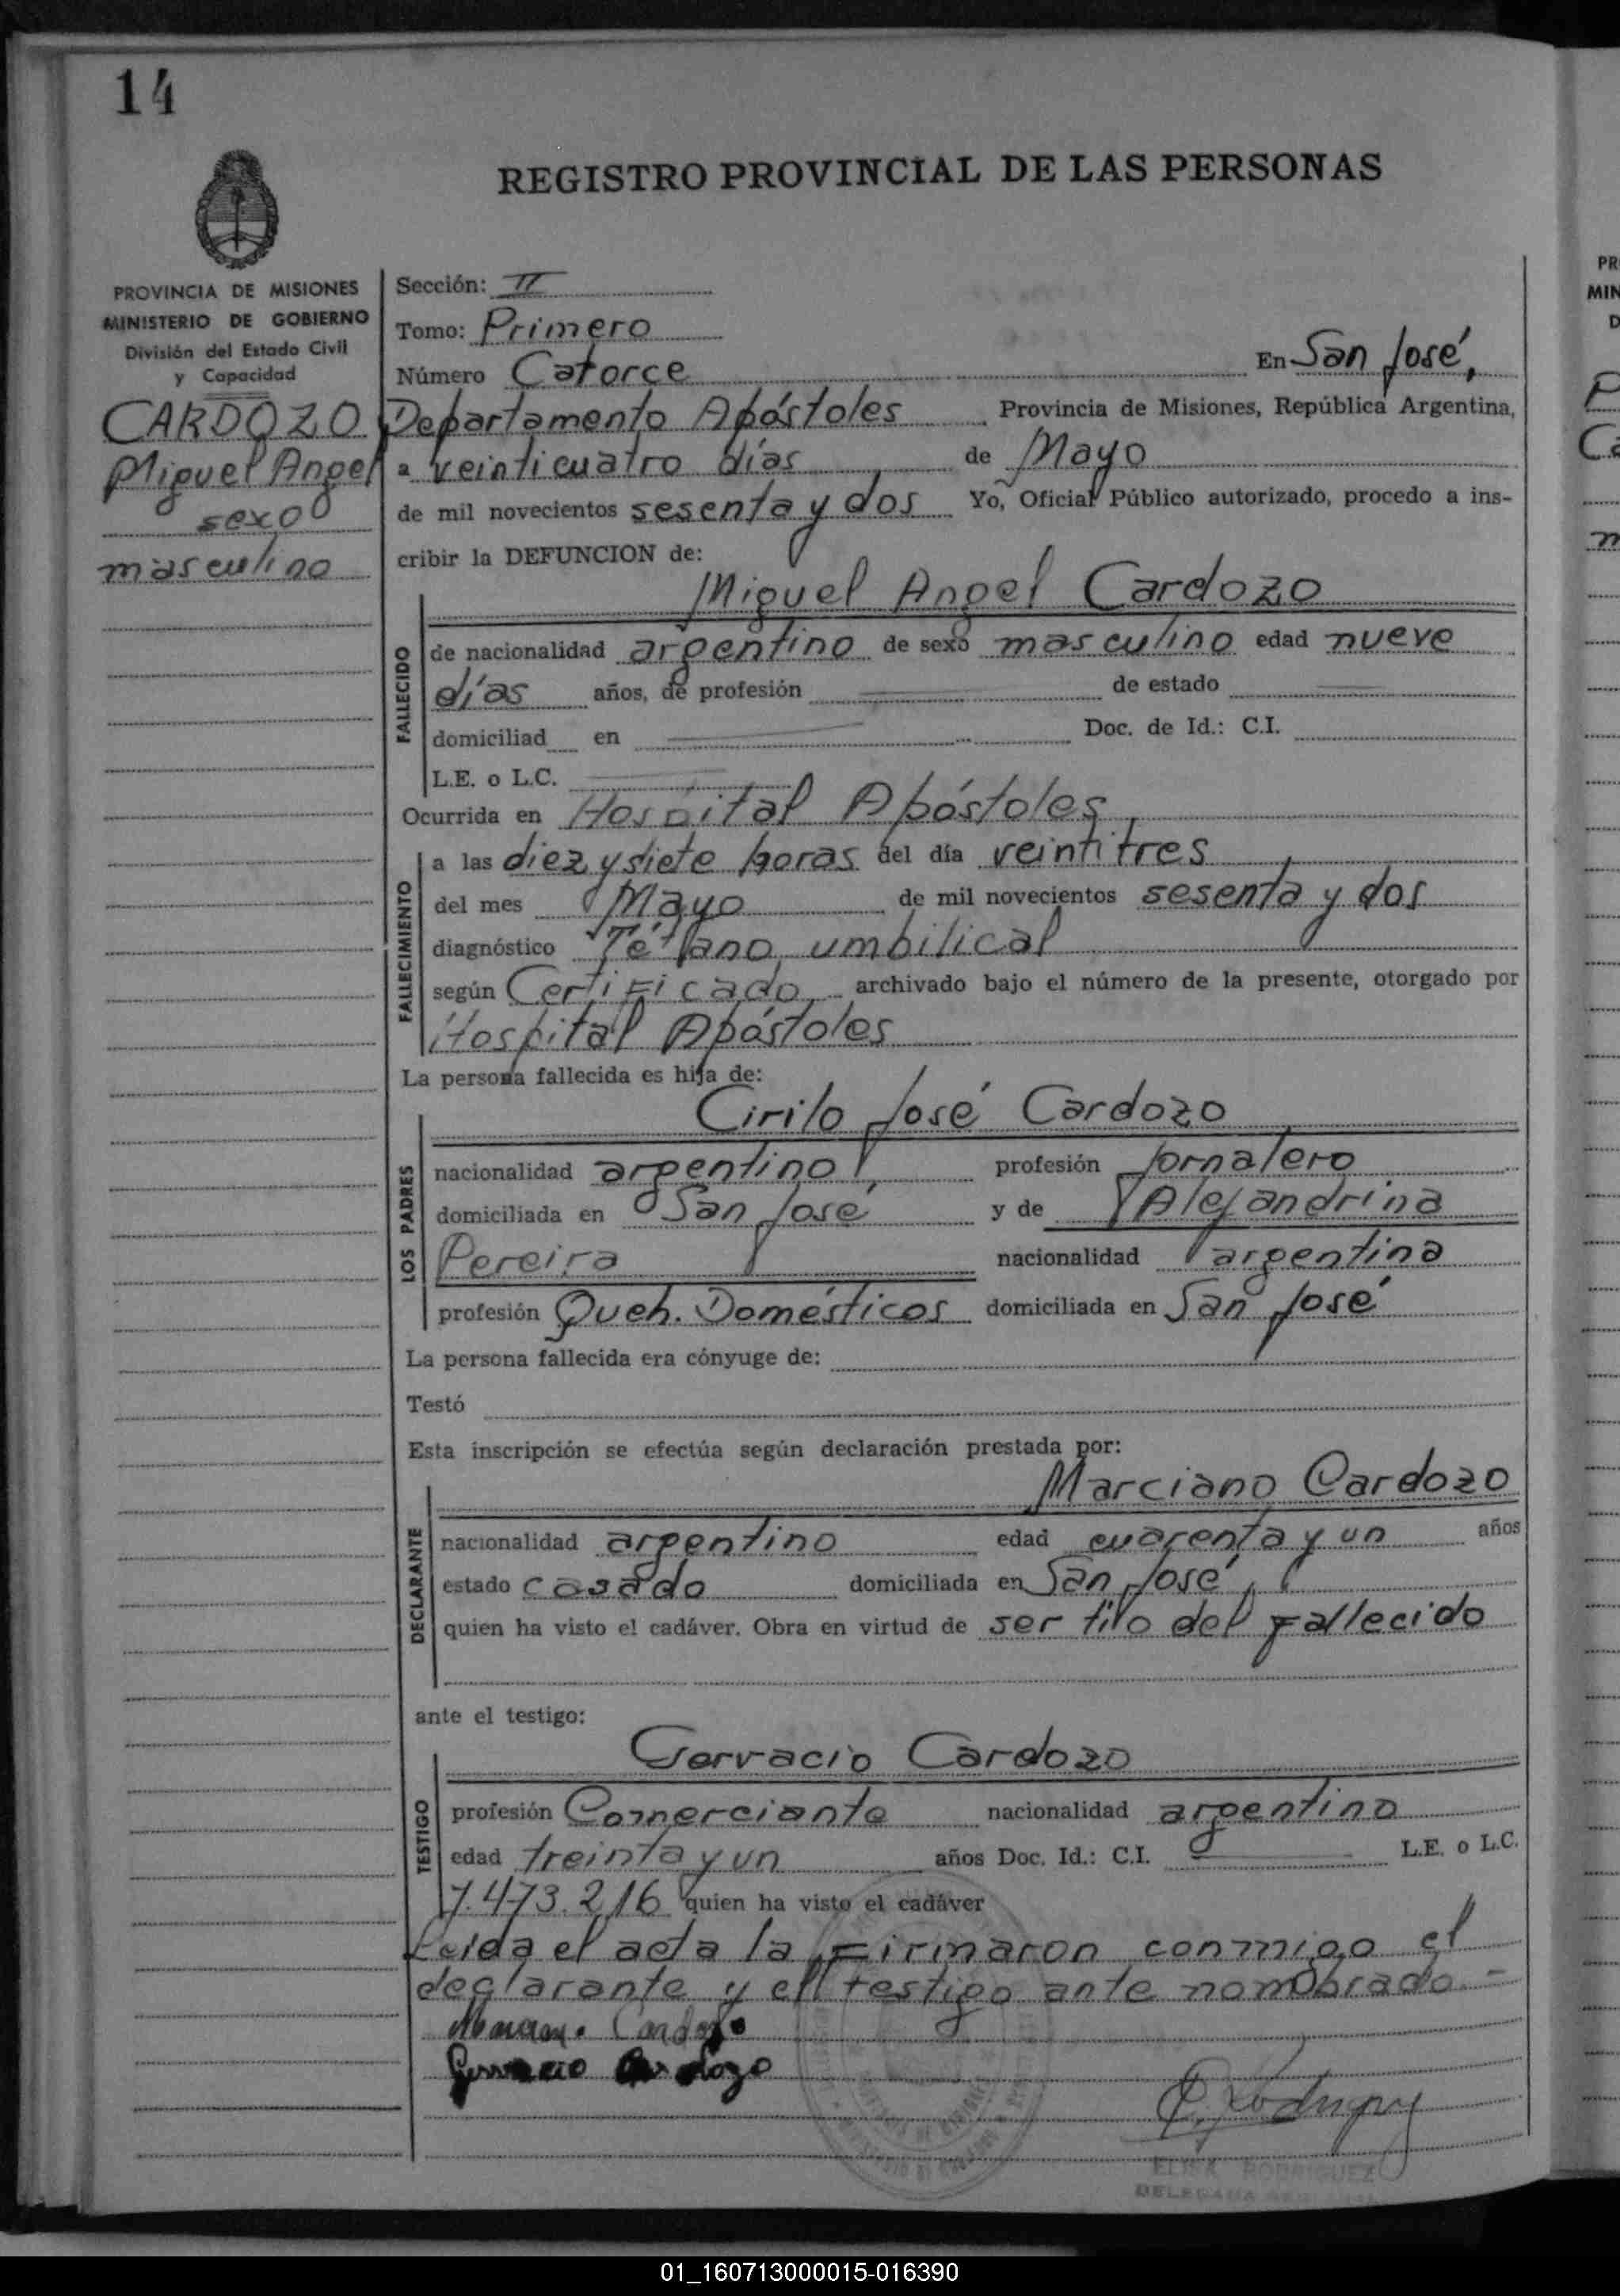 14
REGISTRO PROVINCIAL DE LAS PERSONAS
PROVINCIA DE MISIONES
MINISTERIO DE GOBIERNO
División del Estado Civil
y Capacidad
CARDOZO
Miguel Angel
sexo
masculino
Sección: II
Tomo: Primero
Número Catorce En San José,
Departamento Apóstoles Provincia de Misiones, República Argentina,
a veinticuatro días de Mayo
de mil novecientos sesenta y dos Yo, Oficial Público autorizado, procedo a ins-
cribir la DEFUNCION de:
Miguel Angel Cardozo
FALLECIDO
de nacionalidad argentino de sexo masculino edad nueve
días años, de profesión de estado
domiciliad en Doc. de Id.: C.I.
L.E. o L.C.
Ocurrida en Hospital Apóstoles
FALLECIMIENTO
a las diez y siete horas del día veintitres
del mes Mayo de mil novecientos sesenta y dos
diagnóstico Tétano umbilical
según Certificado archivado bajo el número de la presente, otorgado por
Hospital Apóstoles
La persona fallecida es hija de:
Cirilo José Cardozo
LOS PADRES
nacionalidad argentino, profesión Jornalero
domiciliada en San José y de Alejandrina
Pereira nacionalidad argentina
profesión Queh. Domésticos domiciliada en San José
La persona fallecida era cónyuge de:
Testó
Esta inscripción se efectúa según declaración prestada por:
Marciano Cardozo
DECLARANTE
nacionalidad argentino edad cuarenta y un años
estado casado domiciliada en San José,
quien ha visto el cadáver. Obra en virtud de ser tío del fallecido
ante el testigo:
Gervacio Cardozo
TESTIGO
profesión Comerciante nacionalidad argentino
edad treinta y un años Doc. Id.: C.I. L.E. o L.C.
7.473.216 quien ha visto el cadáver
Leida el acta la firmaron conmigo el
declarante y el testigo ante nombrado.-
Cardozo
Gervacio Cardozo
ELISA RODRIGUEZ
DELEGADA
PR
MIN
D
01_160713000015-016390